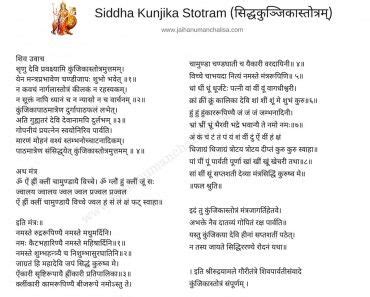 Siddha Kunjika Stotram (सिद्धकुञ्जिकास्तोत्रम्)
www.jaihanumanchalisa.com
शिव उवाच
शृणु देवि प्रवक्ष्यामि कुंजिकास्तोत्रमुत्तमम्
येन मन्त्रप्रभावेण चण्डीजापः शुभो भवेत् ॥१॥
न कवचं नार्गलास्तोत्रं कीलकं न रहस्यकम्
न सूक्तं नापि ध्यानं च न न्यासो न च वार्चनम् ॥२॥
कुंजिकापाठमात्रेण दुर्गापाठफलं लभेत्
अति गुह्यतरं देवि देवानामपि दुर्लभम् ॥३॥
गोपनीयं प्रयत्नेन स्वयोनिरिव पार्वति
मारणं मोहनं वश्यं स्तम्भनोच्चाटनादिकम्
पाठमात्रेण संसिद्ध्येत् कुंजिकास्तोत्रमुत्तमम् ॥४॥
अथ मंत्र
ॐ ऐं ह्रीं क्लीं चामुण्डायै विच्चे। ॐ ग्लौं हुं क्लीं जूं सः
ज्वालय ज्वालय ज्वल ज्वल प्रज्वल प्रज्वल
ऐं ह्रीं क्लीं चामुण्डायै विच्चे ज्वल हं सं लं क्षं फट् स्वाहा।
इति मंत्रः॥
नमस्ते रुद्ररूपिण्यै नमस्ते मधुमर्दिनि
नमः कैटभहारिण्यै नमस्ते महिषार्दिनि ॥१॥
नमस्ते शुम्भहन्त्र्यै च निशुम्भासुरघातिनि ॥२॥
जाग्रतं हि महादेवि जपं सिद्धं कुरुष्व मे
ऐंकारी सृष्टिरूपायै ह्रींकारी प्रतिपालिका ॥३॥
क्लींकारी कामरूपिण्यै बीजरूपे नमोऽस्तु ते
चामुण्डा चण्डघाती च यैकारी वरदायिनी ॥४॥
विच्चे चाभयदा नित्यं नमस्ते मंत्ररूपिणि ॥५॥
धां धीं धूं धूर्जटेः पत्नी वां वीं वूं वागधीश्वरी
क्रां क्रीं क्रूं कालिका देवि शां शीं शूं मे शुभं कुरु ॥६॥
हुं हुं हुंकाररूपिण्यै जं जं जं जम्भनादिनी
भ्रां भ्रीं भ्रूं भैरवी भद्रे भवान्यै ते नमो नमः ॥७॥
अं कं चं टं तं पं यं शं वीं दुं ऐं वीं हं क्षं
धिजाग्रं धिजाग्रं त्रोटय त्रोटय दीप्तं कुरु कुरु स्वाहा
पां पीं पूं पार्वती पूर्णा खां खीं खूं खेचरी तथा ॥८॥
सां सीं सूं सप्तशती देव्या मंत्रसिद्धिं कुरुष्व मे
॥फल श्रुति॥
इदं तु कुंजिकास्तोत्रं मंत्रजागर्तिहेतवे
अभक्ते नैव दातव्यं गोपितं रक्ष पार्वति
यस्तु कुंजिकया देवि हीनां सप्तशतीं पठेत्
न तस्य जायते सिद्धिररण्ये रोदनं यथा
। इति श्रीरुद्रयामले गौरीतंत्रे शिवपार्वतीसंवादे
कुंजिकास्तोत्रं संपूर्णम् ।